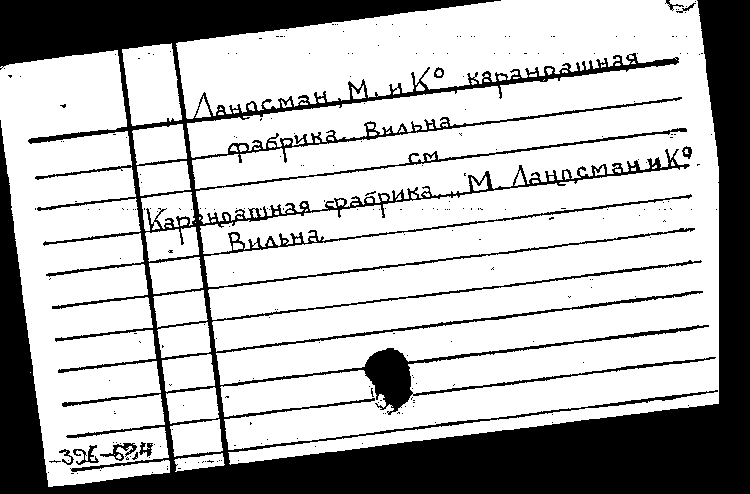 „Ландсман, М. и К°, карандашная
фабрика. Вильна.
см
Карандашная фабрика „М. Ландсман и К°
Вильна.
396-634